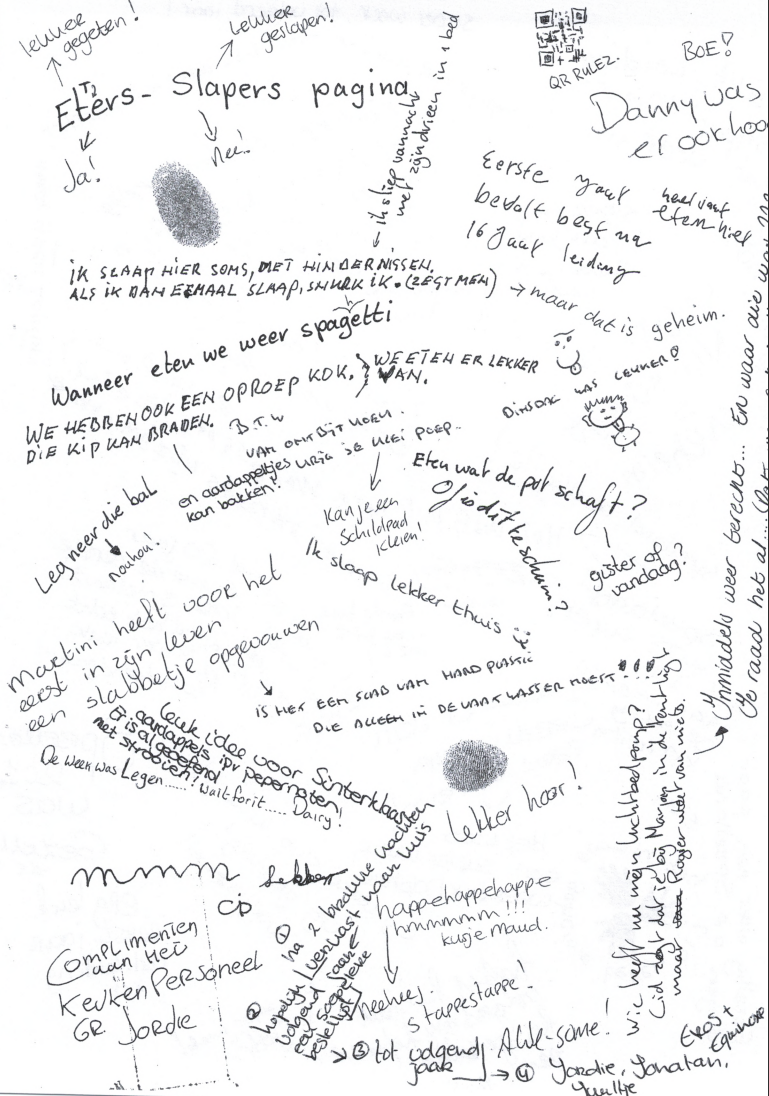 lekker
gegeten!
lekker
geslapen!
Eters - Slapers pagina
Ja!
Nee!
ik sliep vannacht
met zijn drieen in 1 bed
QR RULEZ.
BOE!
Danny was
er ook hoo
Eerste jaar heel veel
bevalt best na eten hier
16 jaar leiding
IK SLAAP HIER SOMS, MET HINDERNISSEN.
ALS IK DAN EENMAAL SLAAP, SNURK IK. (ZEGT MEN)
maar dat is geheim.
Wanneer eten we weer spagetti
h
WE HEBBEN OOK EEN OPROEP KOK.
DIE KIP KAN BRADEN.
WE ETEN ER LEKKER
VAN.
DINSDAG WAS LEKKER!
B.T.W
VAN ONTBIJT KOEK.
en aardappeltjes
kan bakken!
krijg je klei poep..
Kan je een
Schildpad
kleien!
Leg neer die bal
nouhou!
Eten wat de pot schaft?
Of is dit beschuim?
gister of
vandaag?
Ik slaap lekker thuis
Martini heeft voor het
eerst in zijn leven
een slabbetje opgevouwen
IS HET EEN SLAB VAN HARD PLASTIC
DIE ALLEEN IN DE VAATWASSER MOEST!!!!
leuk idee voor Sinterklaas
aardappels ipv pepernoten!
Er is al geoefend
met strooien!
De week was Legen...... wait for it ..... Dairy!
lekker hoor!
mmmm lekker
Cip
Complimenten
aan het
Keuken Personeel
GR. Jordie
① na 2 brakke nachten
② hopelijk vervast naar huis
volgend jaar
een soepelere
bestellijst
happehappehappe
hmmmmm !!!
kusje Maud.
heehee.
stappestappe!
③ tot volgend
jaar
AWE-some!
④ Jordie, Jonatan,
Yuultje
Eros +
Equinoxe
Wie heeft nu mijn luchtbedpomp?
Cid zegt dat ie bij Marjan in de tent ligt
maar Rogier weet van niets.
Inmiddels weer terecht... En waar die was ???
Je raad het al....